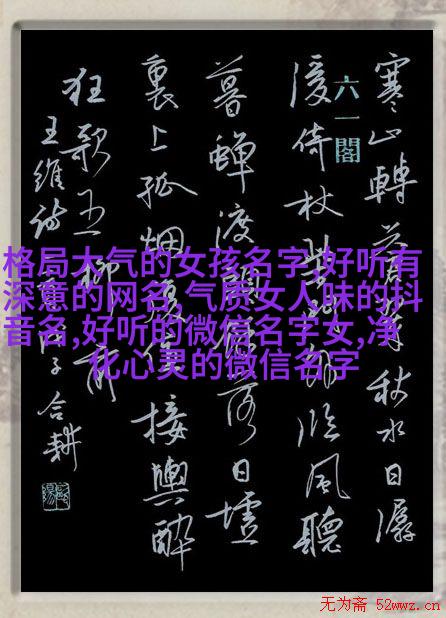 寒山轉蒼翠秋水日潺
六一閣
湲倚杖柴門外臨風聽
暮蟬渡頭餘落日墟
裏上孤烟復值接輿醉
狂歌五柳前
王維詩 子合耕
格局大气的女孩名字,好听有
深意的网名,气质女人味的抖
音名,好听的微信名字女,净
化心灵的微信名字
无为斋 52wwz.cn